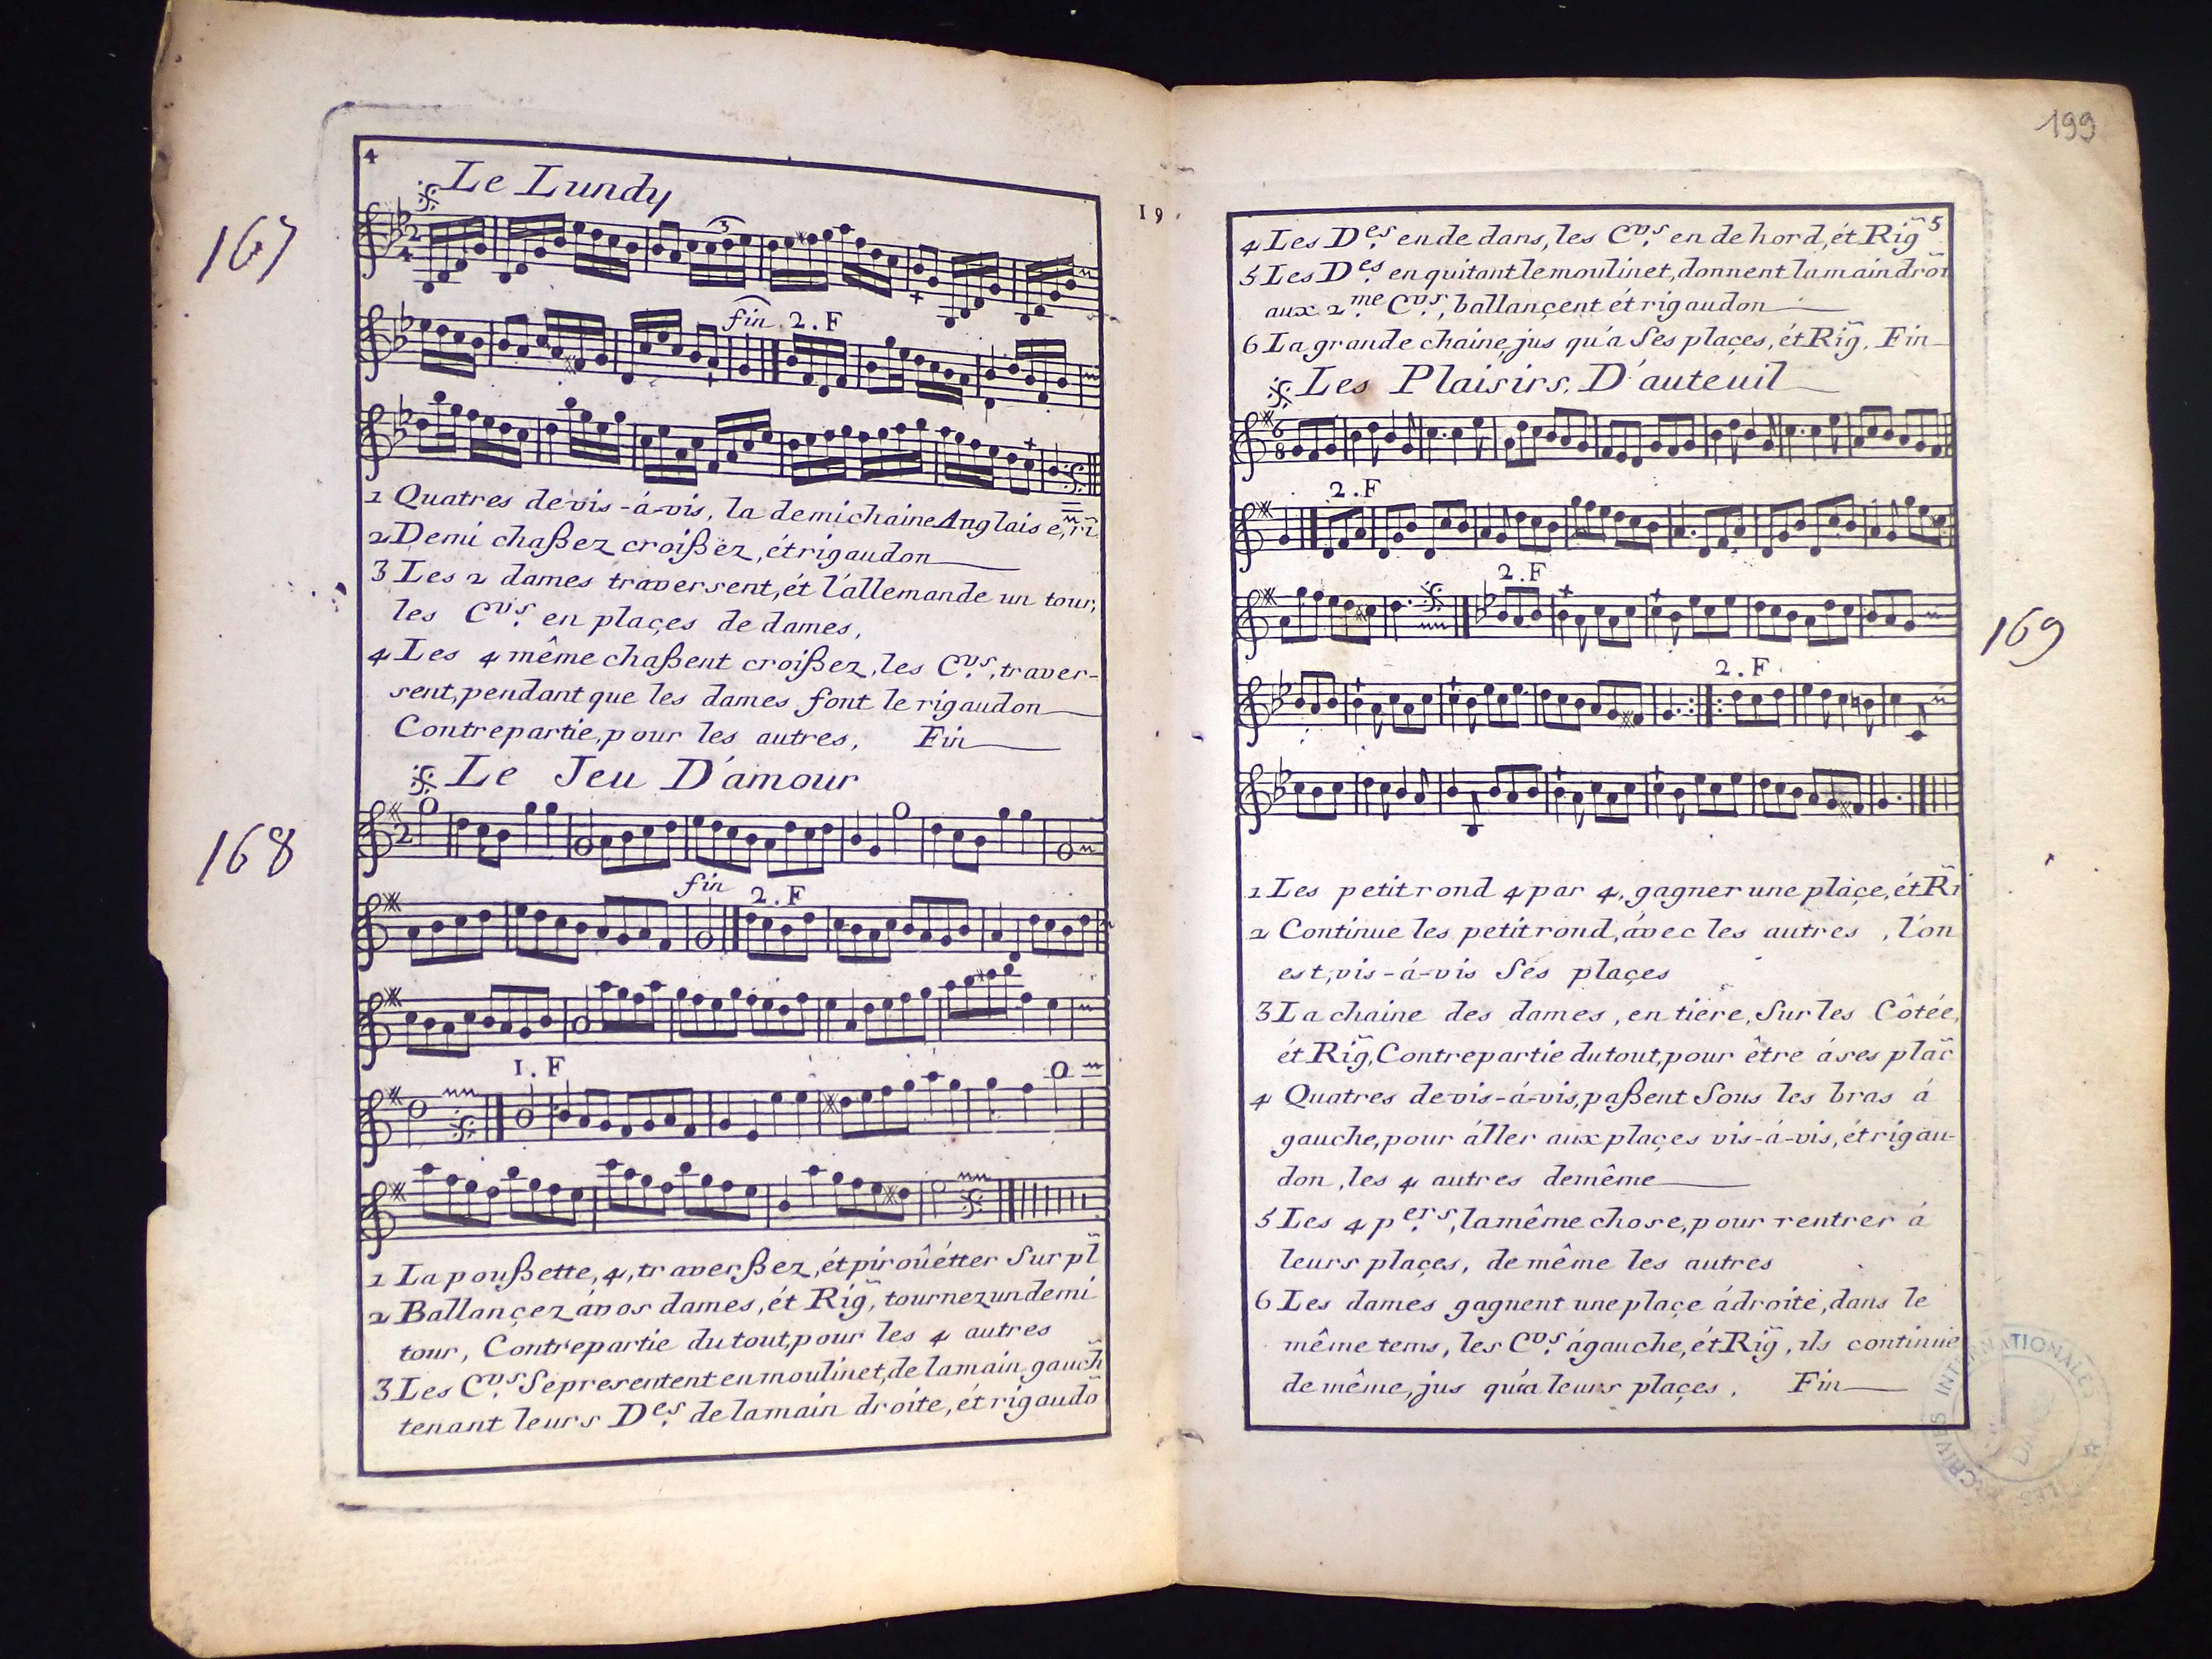 4
Le Lundy
167
3
2
4
fin 2.F
1 Quatres de vis-á-vis, la demi chaine Anglaise, ri
2 Demi chaßez croißez, ét rigaudon
3 Les 2 dames traversent, ét l'allemande un tour,
les Cvs. en plaçes de dames,
4 Les 4 même chaßent croißez, les Cvs, traver-
sent, pendant que les dames font le rigaudon
Contrepartie, pour les autres, Fin
Le Jeu D'amour
168
2
fin 2.F
1.F
1 La poußette, 4, traverßez, ét piroûétter Sur pl
2 Ballançez ávos dames, ét Rig̃, tournez un demi
tour, Contrepartie du tout, pour les 4 autres
3 Les Cvs. Se presentent en moulinet, de la main gauch
tenant leurs Des. de la main droite, ét rigaudõ
19
199
5
4 Les Des. en de dans, les Cvs. en de hord, ét Rig̃
5 Les Des. en quitant le moulinet, donnent la main drõt
aux 2.me Cvs., ballançent ét rigaudon
6 La grande chaine, jus qu'a Ses plaçes, ét Rig̃, Fin
Les Plaisirs, D'auteuil
6
8
2.F
2.F
169
2.F
1 Les petit rond 4 par 4, gagner une plaçe, ét R̃i
2 Continue les petit rond, ávec les autres, l'on
est, vis-á-vis Ses plaçes
3 La chaine des dames, en tiere, Sur les Côtée,
ét Rig̃, Contrepartie du tout, pour être áses plac̃
4 Quatres de vis-á-vis, paßent Sous les bras á
gauche, pour áller aux plaçes vis-á-vis, ét rigau-
don, les 4 autres demême
5 Les 4 pers., la même chose, pour rentrer á
leurs plaçes, de même les autres
6 Les dames gagnent une plaçe ádroite, dans le
même tems, les Cvs. ágauche, ét Rig̃, ils continue
de même, jus qu'a leurs plaçes. Fin
ARCHIVES INTERNATIONALES